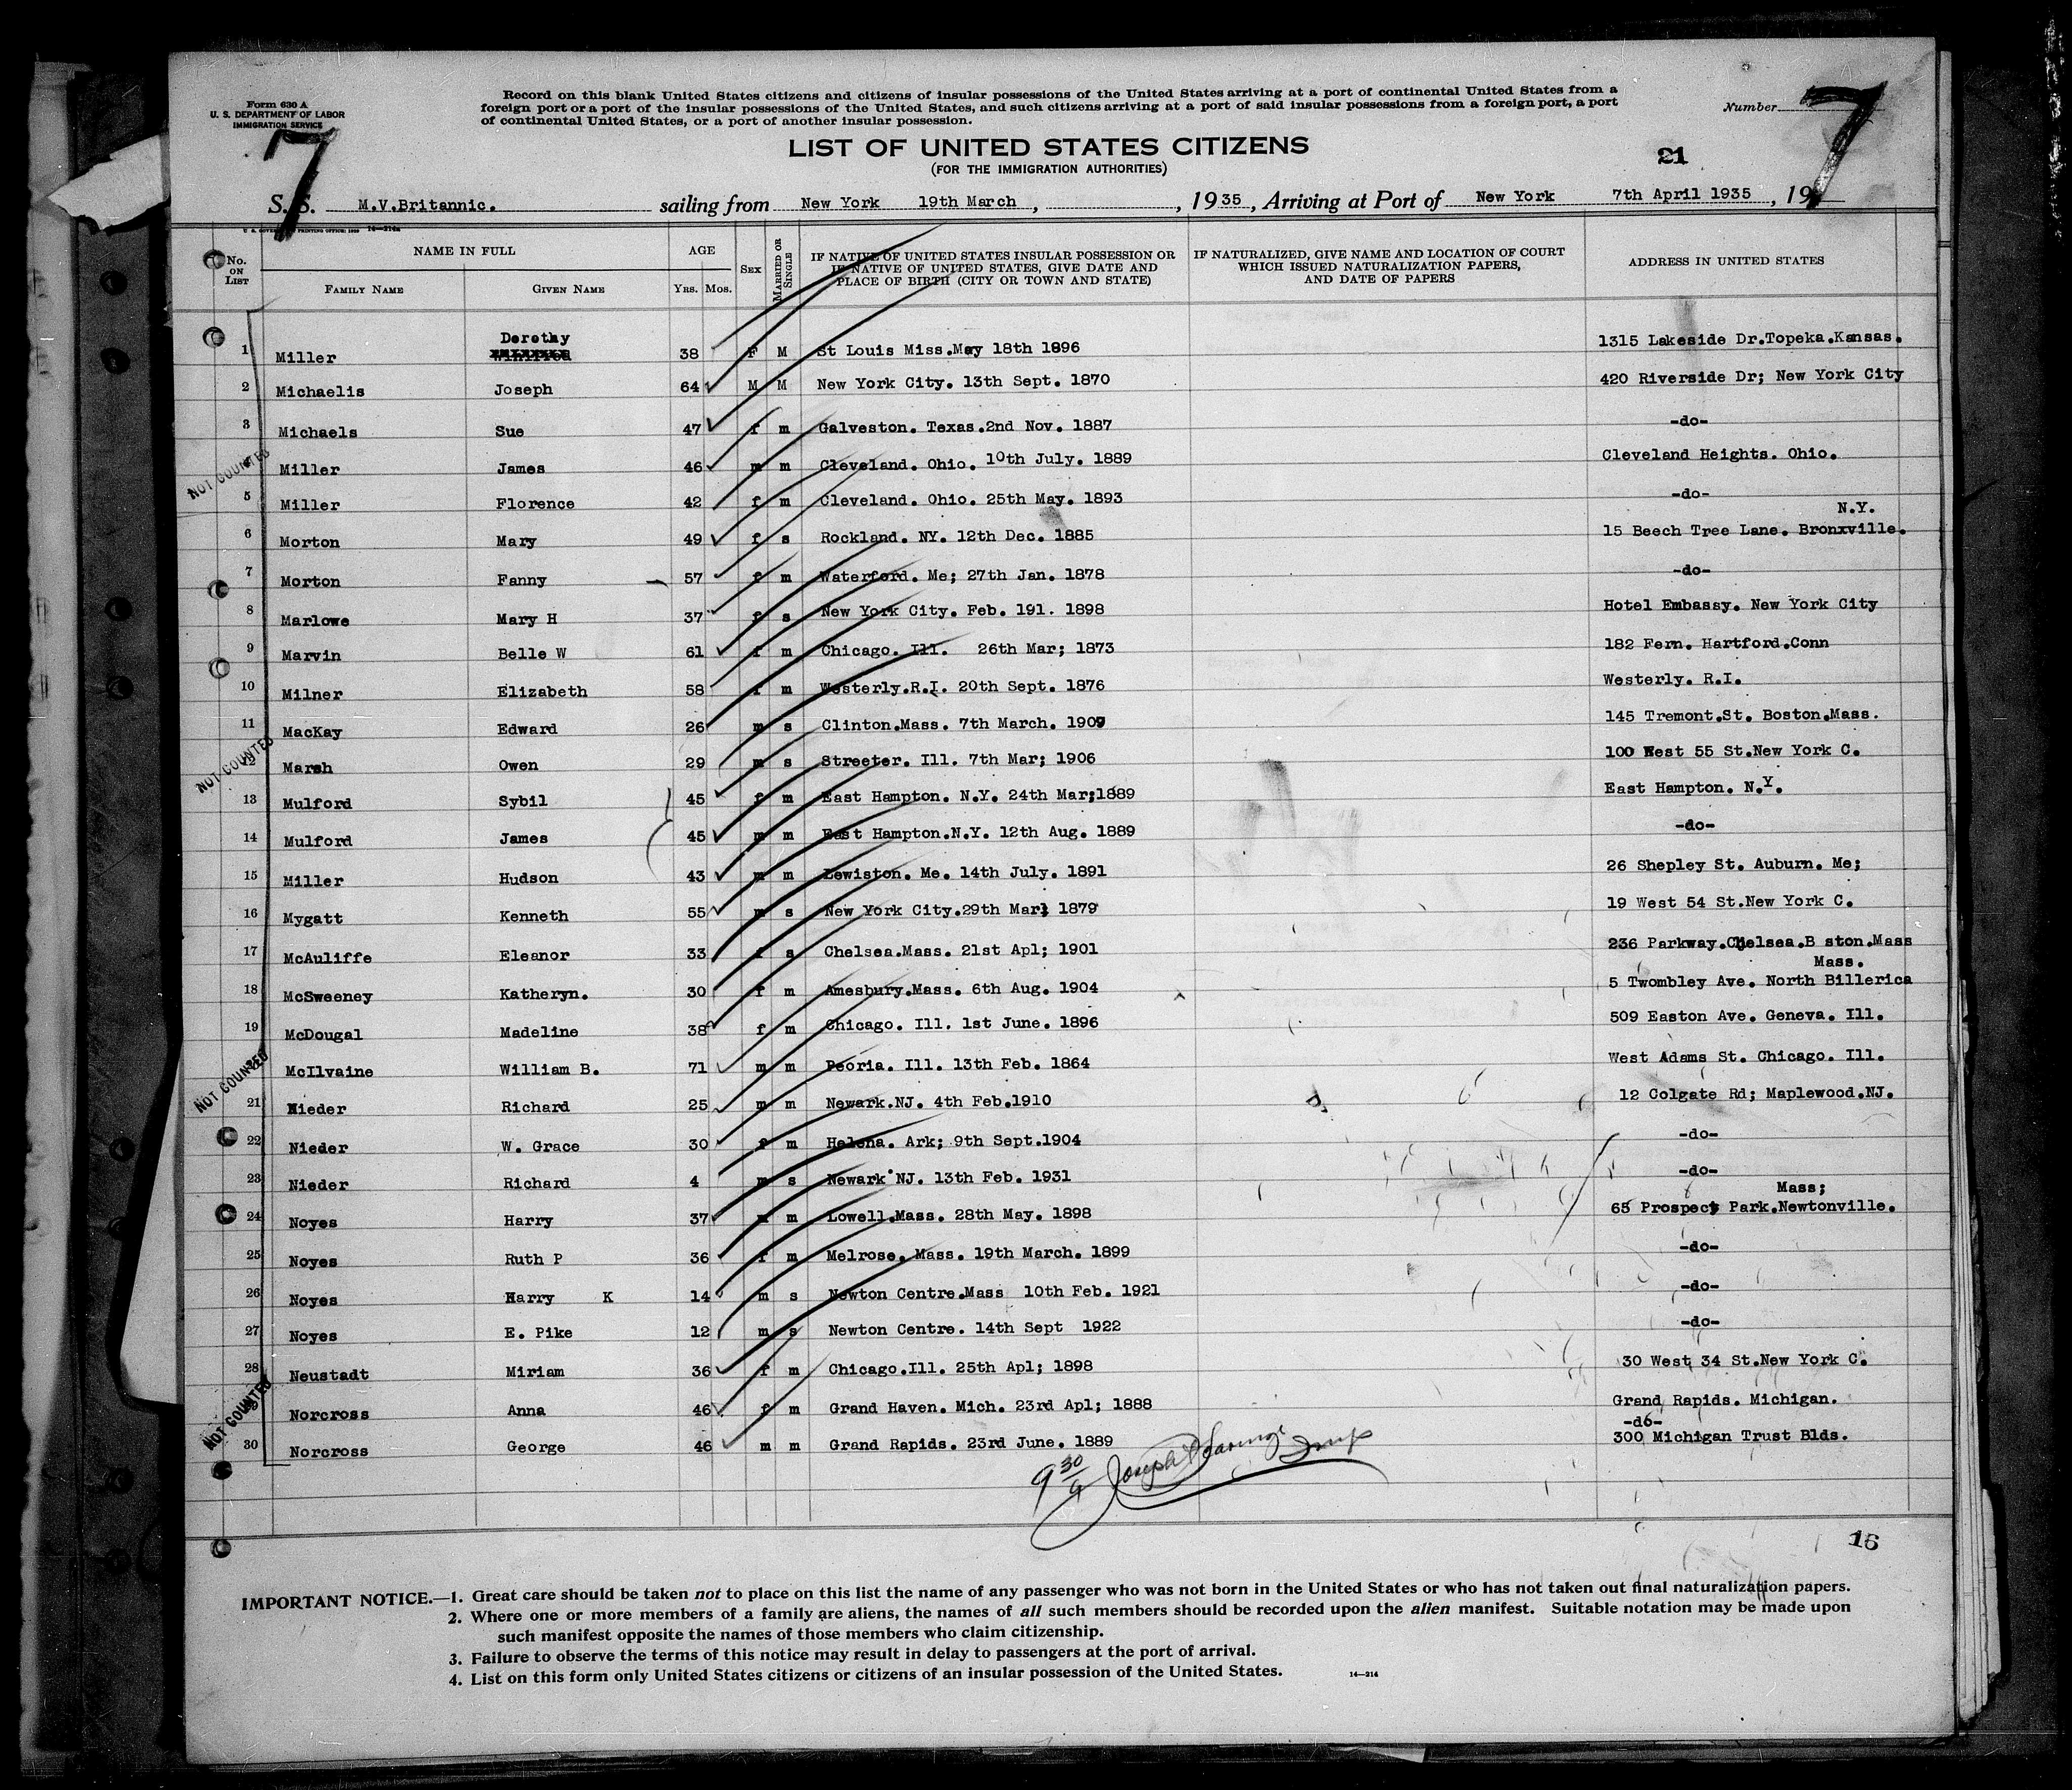 Form 630 A
U. S. DEPARTMENT OF LABOR
IMMIGRATION SERVICE
Record on this blank United States citizens and citizens of insular possessions of the United States arriving at a port of continental United States from a
foreign port or a port of the insular possessions of the United States, and such citizens arriving at a port of said insular possessions from a foreign port, a port
of continental United States, or a port of another insular possession.
Number 7
7
LIST OF UNITED STATES CITIZENS
(FOR THE IMMIGRATION AUTHORITIES)
21
S. S. M.V.Britannic. sailing from New York 19th March, , 1935, Arriving at Port of New York 7th April 1935, 19
No. ON LIST NAME IN FULL AGE SEX MARRIED OR SINGLE IF NATIVE OF UNITED STATES INSULAR POSSESSION OR IF NATIVE OF UNITED STATES, GIVE DATE AND PLACE OF BIRTH (CITY OR TOWN AND STATE) IF NATURALIZED, GIVE NAME AND LOCATION OF COURT WHICH ISSUED NATURALIZATION PAPERS, AND DATE OF PAPERS ADDRESS IN UNITED STATES
FAMILY NAME GIVEN NAME YRS. MOS.
1 Miller Dorothy 38 F M St Louis Miss.May 18th 1896 1315 Lakeside Dr.Topeka.Kansas.
2 Michaelis Joseph 64 M M New York City. 13th Sept. 1870 420 Riverside Dr; New York City
3 Michaels Sue 47 f m Galveston. Texas.2nd Nov. 1887 -do-
Miller James 46 m m Cleveland. Ohio. 10th July. 1889 Cleveland Heights. Ohio.
NOT COUNTED
5 Miller Florence 42 f m Cleveland. Ohio. 25th May. 1893 -do-
N.Y.
6 Morton Mary 49 f s Rockland. NY. 12th Dec. 1885 15 Beech Tree Lane. Bronxville.
7 Morton Fanny 57 f m Waterford. Me; 27th Jan. 1878 -do-
8 Marlowe Mary H 37 f s New York City. Feb. 191. 1898 Hotel Embassy. New York City
9 Marvin Belle W 61 f m Chicago. Ill. 26th Mar; 1873 182 Fern. Hartford.Conn
10 Milner Elizabeth 58 f m Westerly.R.I. 20th Sept. 1876 Westerly. R.I.
11 MacKay Edward 26 m s Clinton.Mass. 7th March. 1909 145 Tremont.St. Boston.Mass.
NOT COUNTED
Marsh Owen 29 m s Streeter. Ill. 7th Mar; 1906 100 West 55 St.New York C.
13 Mulford Sybil 45 f m East Hampton. N.Y. 24th Mar;1889 East Hampton. N.Y.
14 Mulford James 45 m m East Hampton.N.Y. 12th Aug. 1889 -do-
15 Miller Hudson 43 m m Lewiston. Me. 14th July. 1891 26 Shepley St. Auburn. Me;
16 Mygatt Kenneth 55 m s New York City.29th Mar; 1879 19 West 54 St.New York C.
17 McAuliffe Eleanor 33 f s Chelsea.Mass. 21st Apl; 1901 236 Parkway.Chelsea.B ston.Mass
Mass.
18 McSweeney Katheryn. 30 f m Amesbury.Mass. 6th Aug. 1904 5 Twombley Ave. North Billerica
19 McDougal Madeline 38 f m Chicago. Ill. 1st June. 1896 509 Easton Ave. Geneva. Ill.
McIlvaine William B. 71 m m Peoria. Ill. 13th Feb. 1864 West Adams St. Chicago. Ill.
NOT COUNTED
21 Nieder Richard 25 m m Newark.NJ. 4th Feb.1910 12 Colgate Rd; Maplewood.NJ.
22 Nieder W. Grace 30 f m Helena. Ark; 9th Sept.1904 -do-
23 Nieder Richard 4 m s Newark NJ. 13th Feb. 1931 -do-
Mass;
24 Noyes Harry 37 m m Lowell.Mass. 28th May. 1898 65 Prospect Park.Newtonville.
25 Noyes Ruth P 36 f m Melrose. Mass. 19th March. 1899 -do-
26 Noyes Harry K 14 m s Newton Centre.Mass 10th Feb. 1921 -do-
27 Noyes E. Pike 12 m s Newton Centre. 14th Sept 1922 -do-
28 Neustadt Miriam 36 f m Chicago.Ill. 25th Apl; 1898 30 West 34 St.New York C.
NOT COUNTED
Norcross Anna 46 f m Grand Haven. Mich. 23rd Apl; 1888 Grand Rapids. Michigan.
-do-
30 Norcross George 46 m m Grand Rapids. 23rd June. 1889 300 Michigan Trust Blds.
9 30/4 Joseph
16
IMPORTANT NOTICE.—1. Great care should be taken not to place on this list the name of any passenger who was not born in the United States or who has not taken out final naturalization papers.
2. Where one or more members of a family are aliens, the names of all such members should be recorded upon the alien manifest. Suitable notation may be made upon
such manifest opposite the names of those members who claim citizenship.
3. Failure to observe the terms of this notice may result in delay to passengers at the port of arrival.
4. List on this form only United States citizens or citizens of an insular possession of the United States.
14—214